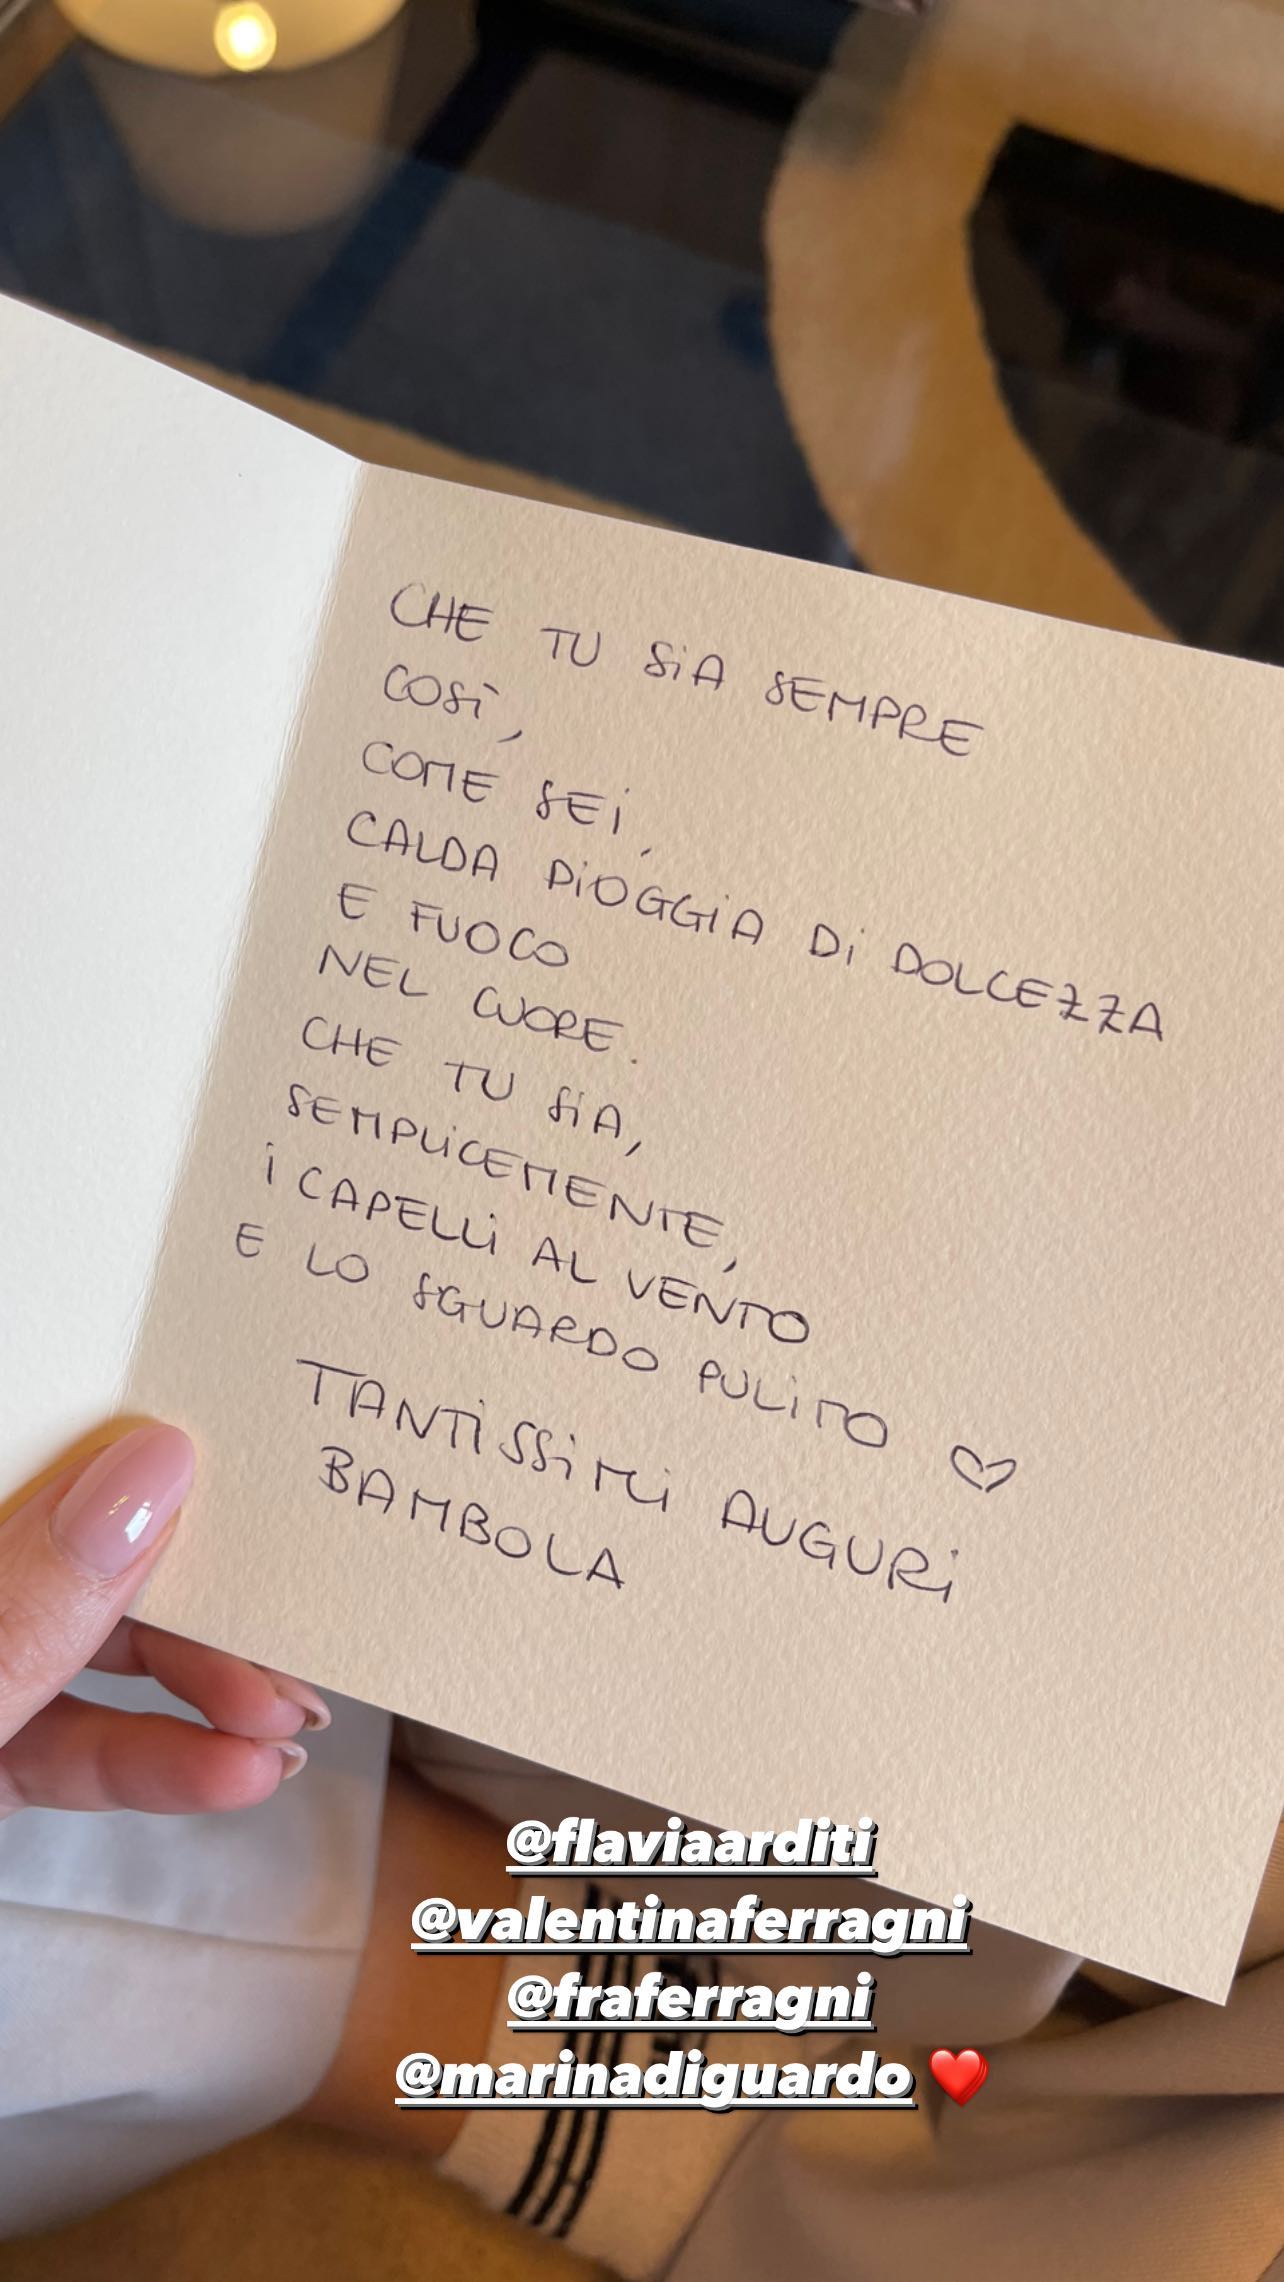 CHE TU SiA SEMPRE
COSì,
COME SEi,
CALDA PiOGGiA Di DOLCEZZA
E FUOCO
NEL CUORE.
CHE TU SiA,
SEMPLiCEMENTE,
i CAPELLi AL VENTO
E LO SGUARDO PULiTO ♡
TANTiSSiMi AUGURi
BAMBOLA
@flaviaarditi
@valentinaferragni
@fraferragni
@marinadiguardo ❤️